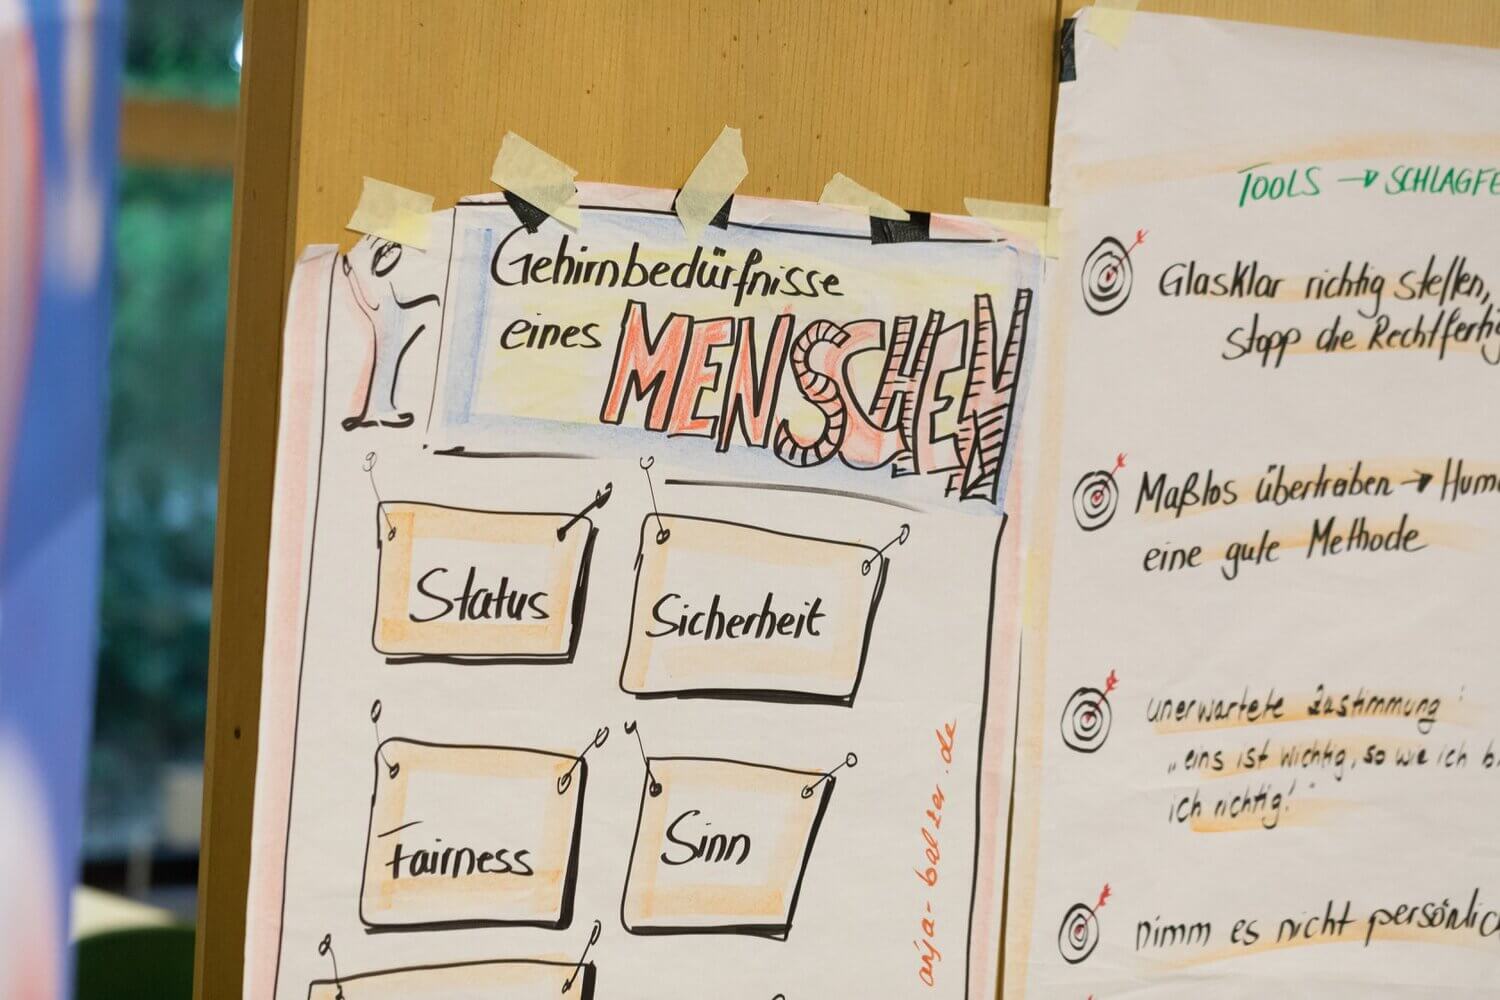 Gehirnbedürfnisse
eines MENSCHEN
Status
Sicherheit
Fairness
Sinn
anja-balzer.de
TOOLS → SCHLAGFE
Glasklar richtig stellen,
stopp die Rechtfertig
Maßlos übertreiben → Hum
eine gute Methode
unerwartete Zustimmung:
„eins ist wichtig, so wie ich b
ich richtig!"
nimm es nicht persönlic